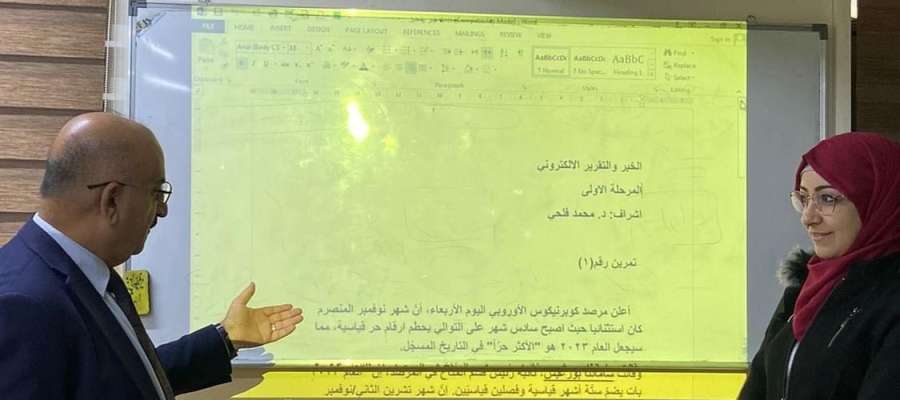 FILE HOME INSERT DESIGN PAGE LAYOUT REFERENCES MAILINGS REVIEW VIEW
Sign in
Find
Replace
Select
AaBbCcDc AaBbCcDc AaBbC
Normal No Spac... Heading 1
Paragraph Styles Editing
الخبر والتقرير الالكتروني
المرحلة الاولى
اشراف: د. محمد فلحي
تمرين رقم(١)
أعلن مرصد كوبرنيكوس الأوروبي اليوم الأربعاء، أنّ شهر نوفمبر المنصرم
كان استثنائيا حيث اصبح سادس شهر على التوالي يحطم ارقام حر قياسية، مما
سيجعل العام ٢٠٢٣ هو "الأكثر حرّاً" في التاريخ المسجّل.
وقالت سامانثا بورغيس، نائبة رئيس قسم المناخ في المرصد، إنّ "العام ٢٠٢٣
بات يضمّ ستّة أشهر قياسية وفصلين قياسيّين. إنّ شهر تشرين الثاني/نوفمبر